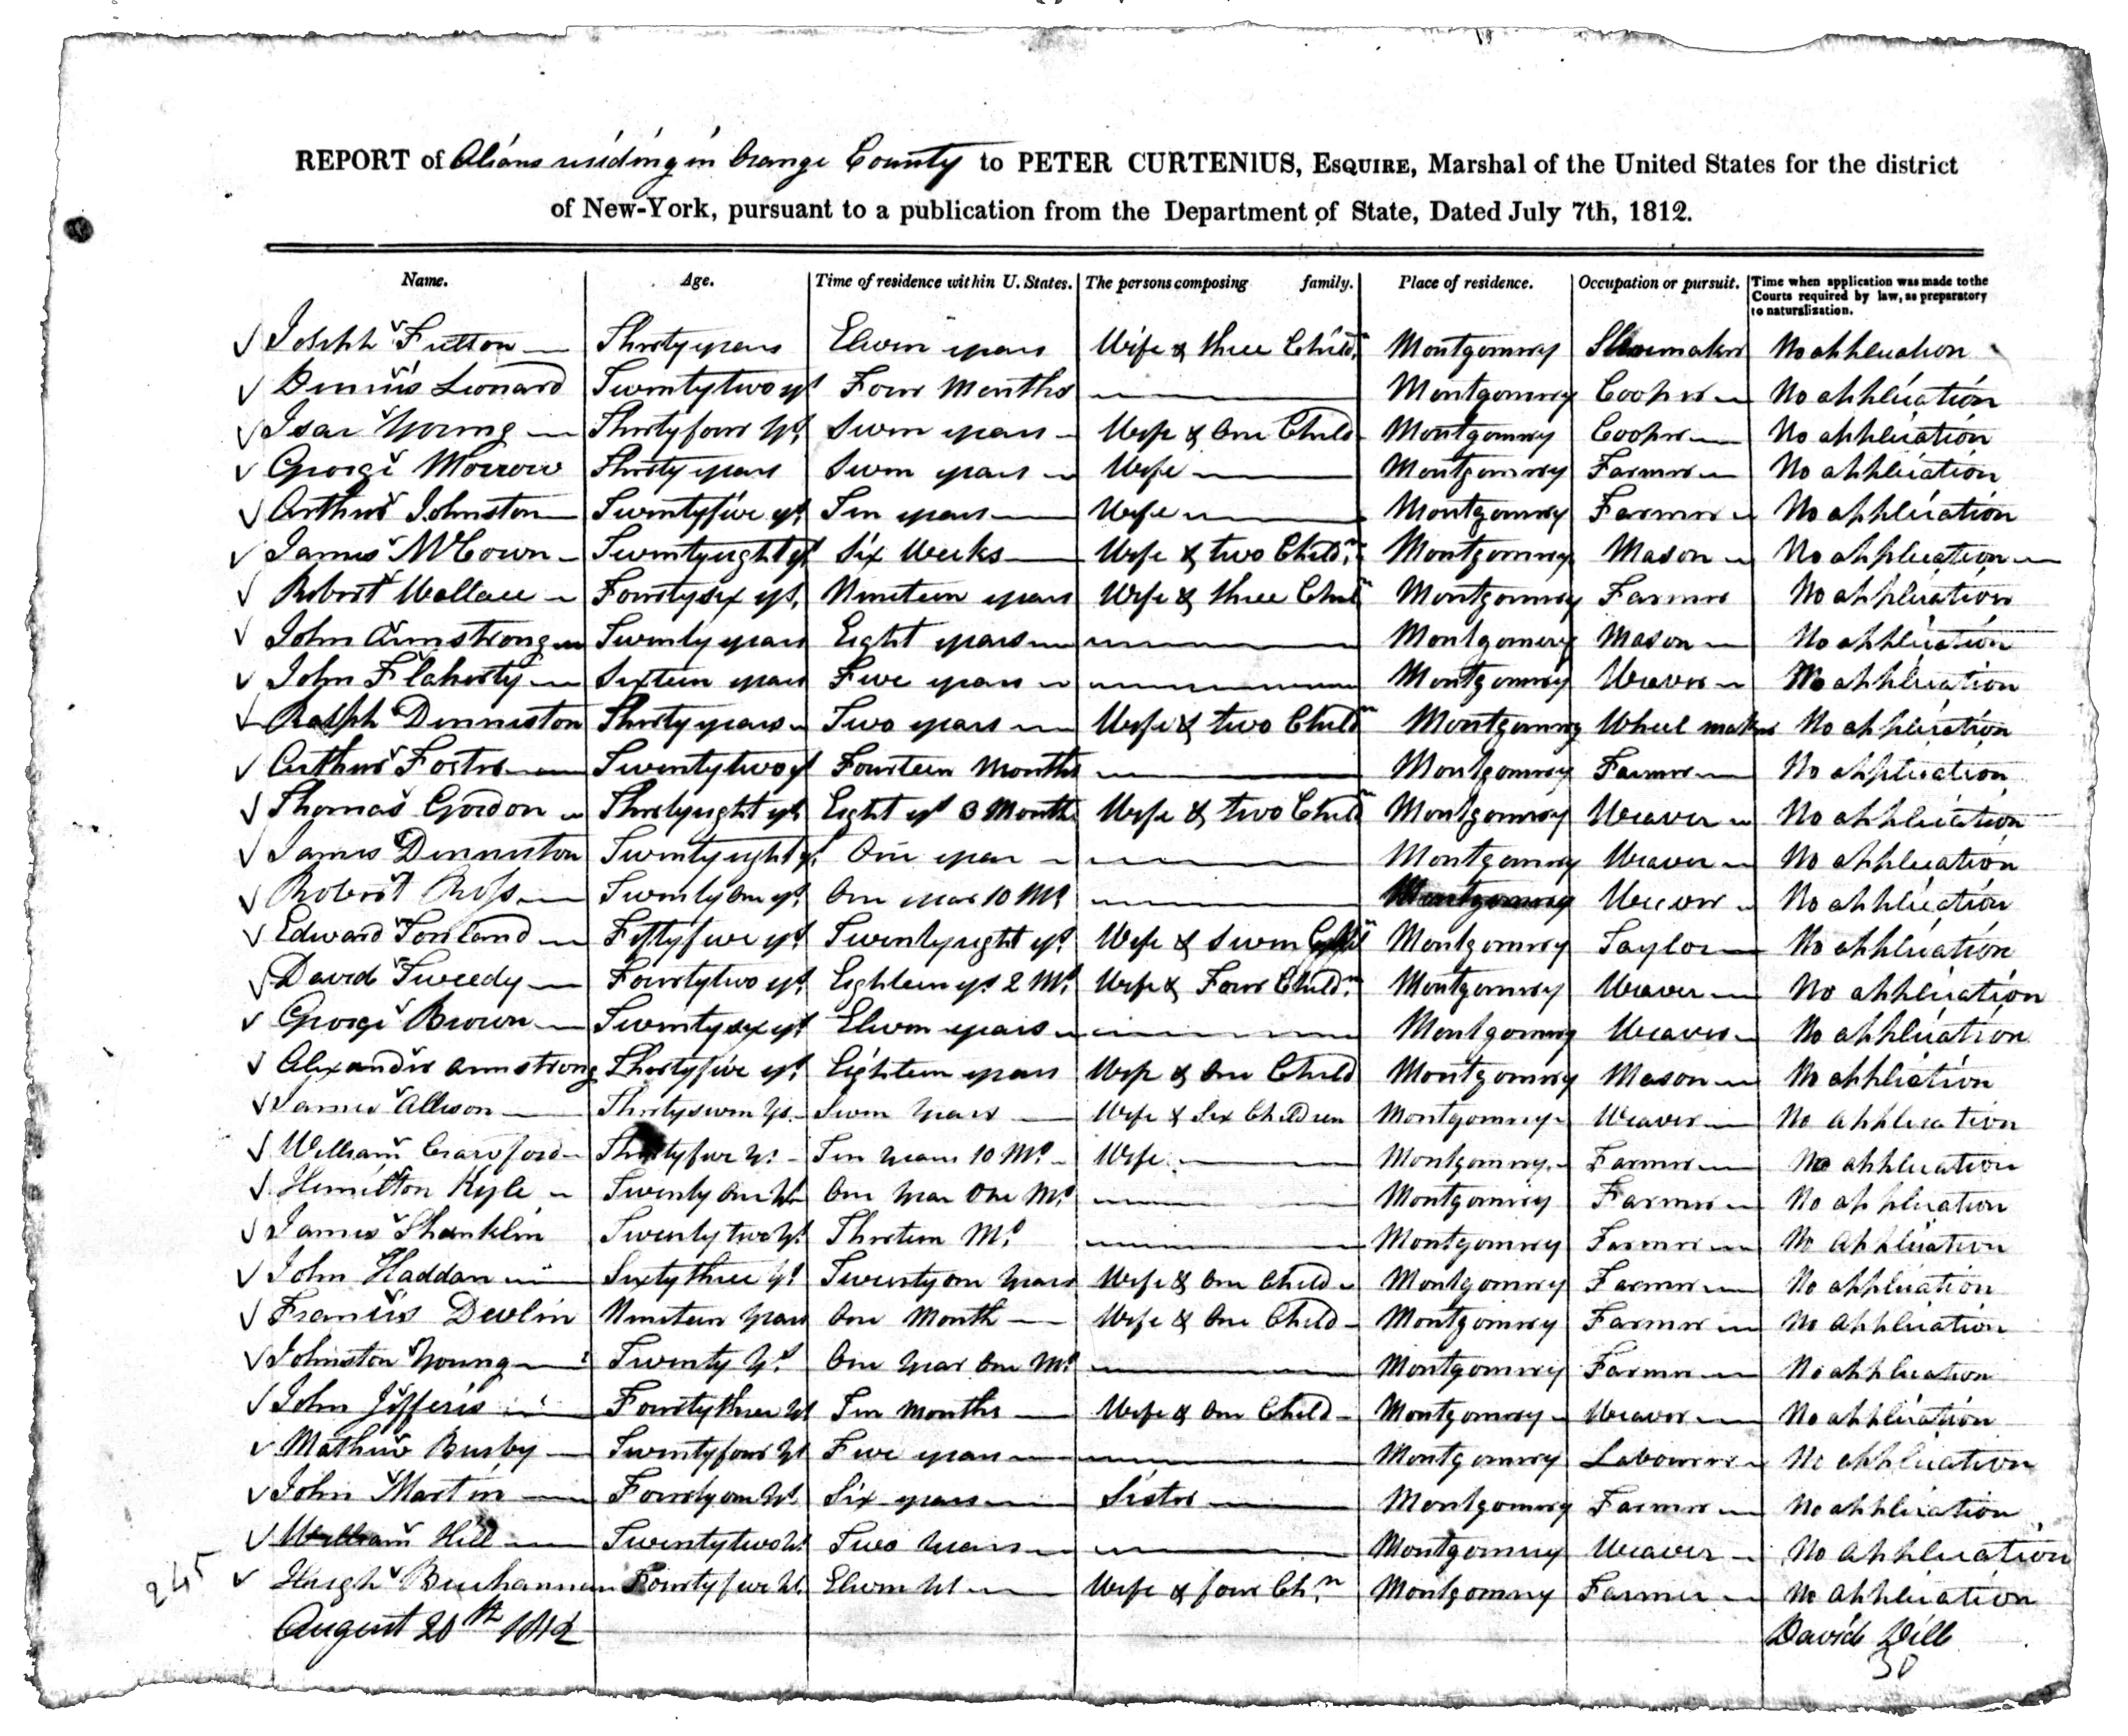 REPORT of Aliens residing in Orange County to PETER CURTENIUS, ESQUIRE, Marshal of the United States for the district
of New-York, pursuant to a publication from the Department of State, Dated July 7th, 1812.
Name. Age. Time of residence within U. States. The persons composing family. Place of residence. Occupation or pursuit. Time when application was made to the
Courts required by law, as preparatory
to naturalization.
Joseph Fulton Thirty years Eleven years Wife & three Childn Montgomery Shoemaker No application
Dennis Leonard Twenty two ys Four Months Montgomery Cooper No application
Isac Young Thirty four Ys Seven years Wife & One Child Montgomery Cooper No application
George Morrow Thirty years Seven years Wife Montgomery Farmer No application
Arthur Johnston Twenty five ys Ten years Wife Montgomery Farmer No application
James McCown Twenty eight ys Six Weeks Wife & two Childn Montgomery Mason No application
Robert Wallace Fourty six ys. Nineteen years Wife & three Chiln Montgomery Farmer No application
John Armstrong Twenty years Eight years Montgomery Mason No application
John Flaherty Sixteen years Five years Montgomery Weaver No application
Ralph Denniston Thirty years Two years Wife & two Childn Montgomery Wheel maker No application
Arthur Foster Twenty two ys Fourteen Months Montgomery Farmer No application
Thomas Gordon Thirty eight ys Eight ys 3 Months Wife & two Childn Montgomery Weaver No application
James Denniston Twenty eight ys One year Montgomery Weaver No application
Robert Ross Twenty One ys One year 10 Ms Montgomery Weaver No application
Edward Fifty five ys Twenty eight ys Wife & seven Montgomery Taylor No application
David Tweedy Fourty two ys Eighteen ys 2 Ms Wife & Four Childn Montgomery Weaver No application
George Brown Twenty six ys Eleven years Montgomery Weaver No application
Alexander Armstrong Thirty five ys Eighteen years Wife & One Child Montgomery Mason No application
James Allison Thirty seven Ys. Seven Years Wife & Six Children Montgomery Weaver No application
William Crawford Thirty five Ys Ten Years 10 Ms Wife Montgomery Farmer No application
Hemilton Kyle Twenty One Ys One Year One Ms Montgomery Farmer No application
James Shanklin Twenty two Ys Thirteen Ms Montgomery Farmer No application
John Haddan Sixty three Ys Twenty one Years Wife & One Child Montgomery Farmer No application
Francis Devlin Nineteen Years One Month Wife & One Child Montgomery Farmer No application
Johnston Young Twenty Ys One Year One Ms Montgomery Farmer No application
John Jefferis Fourty three Ys Ten Months Wife & One Child Montgomery Weaver No application
Mathew Busby Twenty four Ys Five years Montgomery Labourer No application
John Martin Fourty one Ys Six years Sister Montgomery Farmer No application
William Hill Twenty two Ys Two Years Montgomery Weaver No application
245 Hugh Buchannan Fourty five Ys. Eleven Ys Wife & four Chn Montgomery Farmer No application
August 20th 1812 David Dill
30